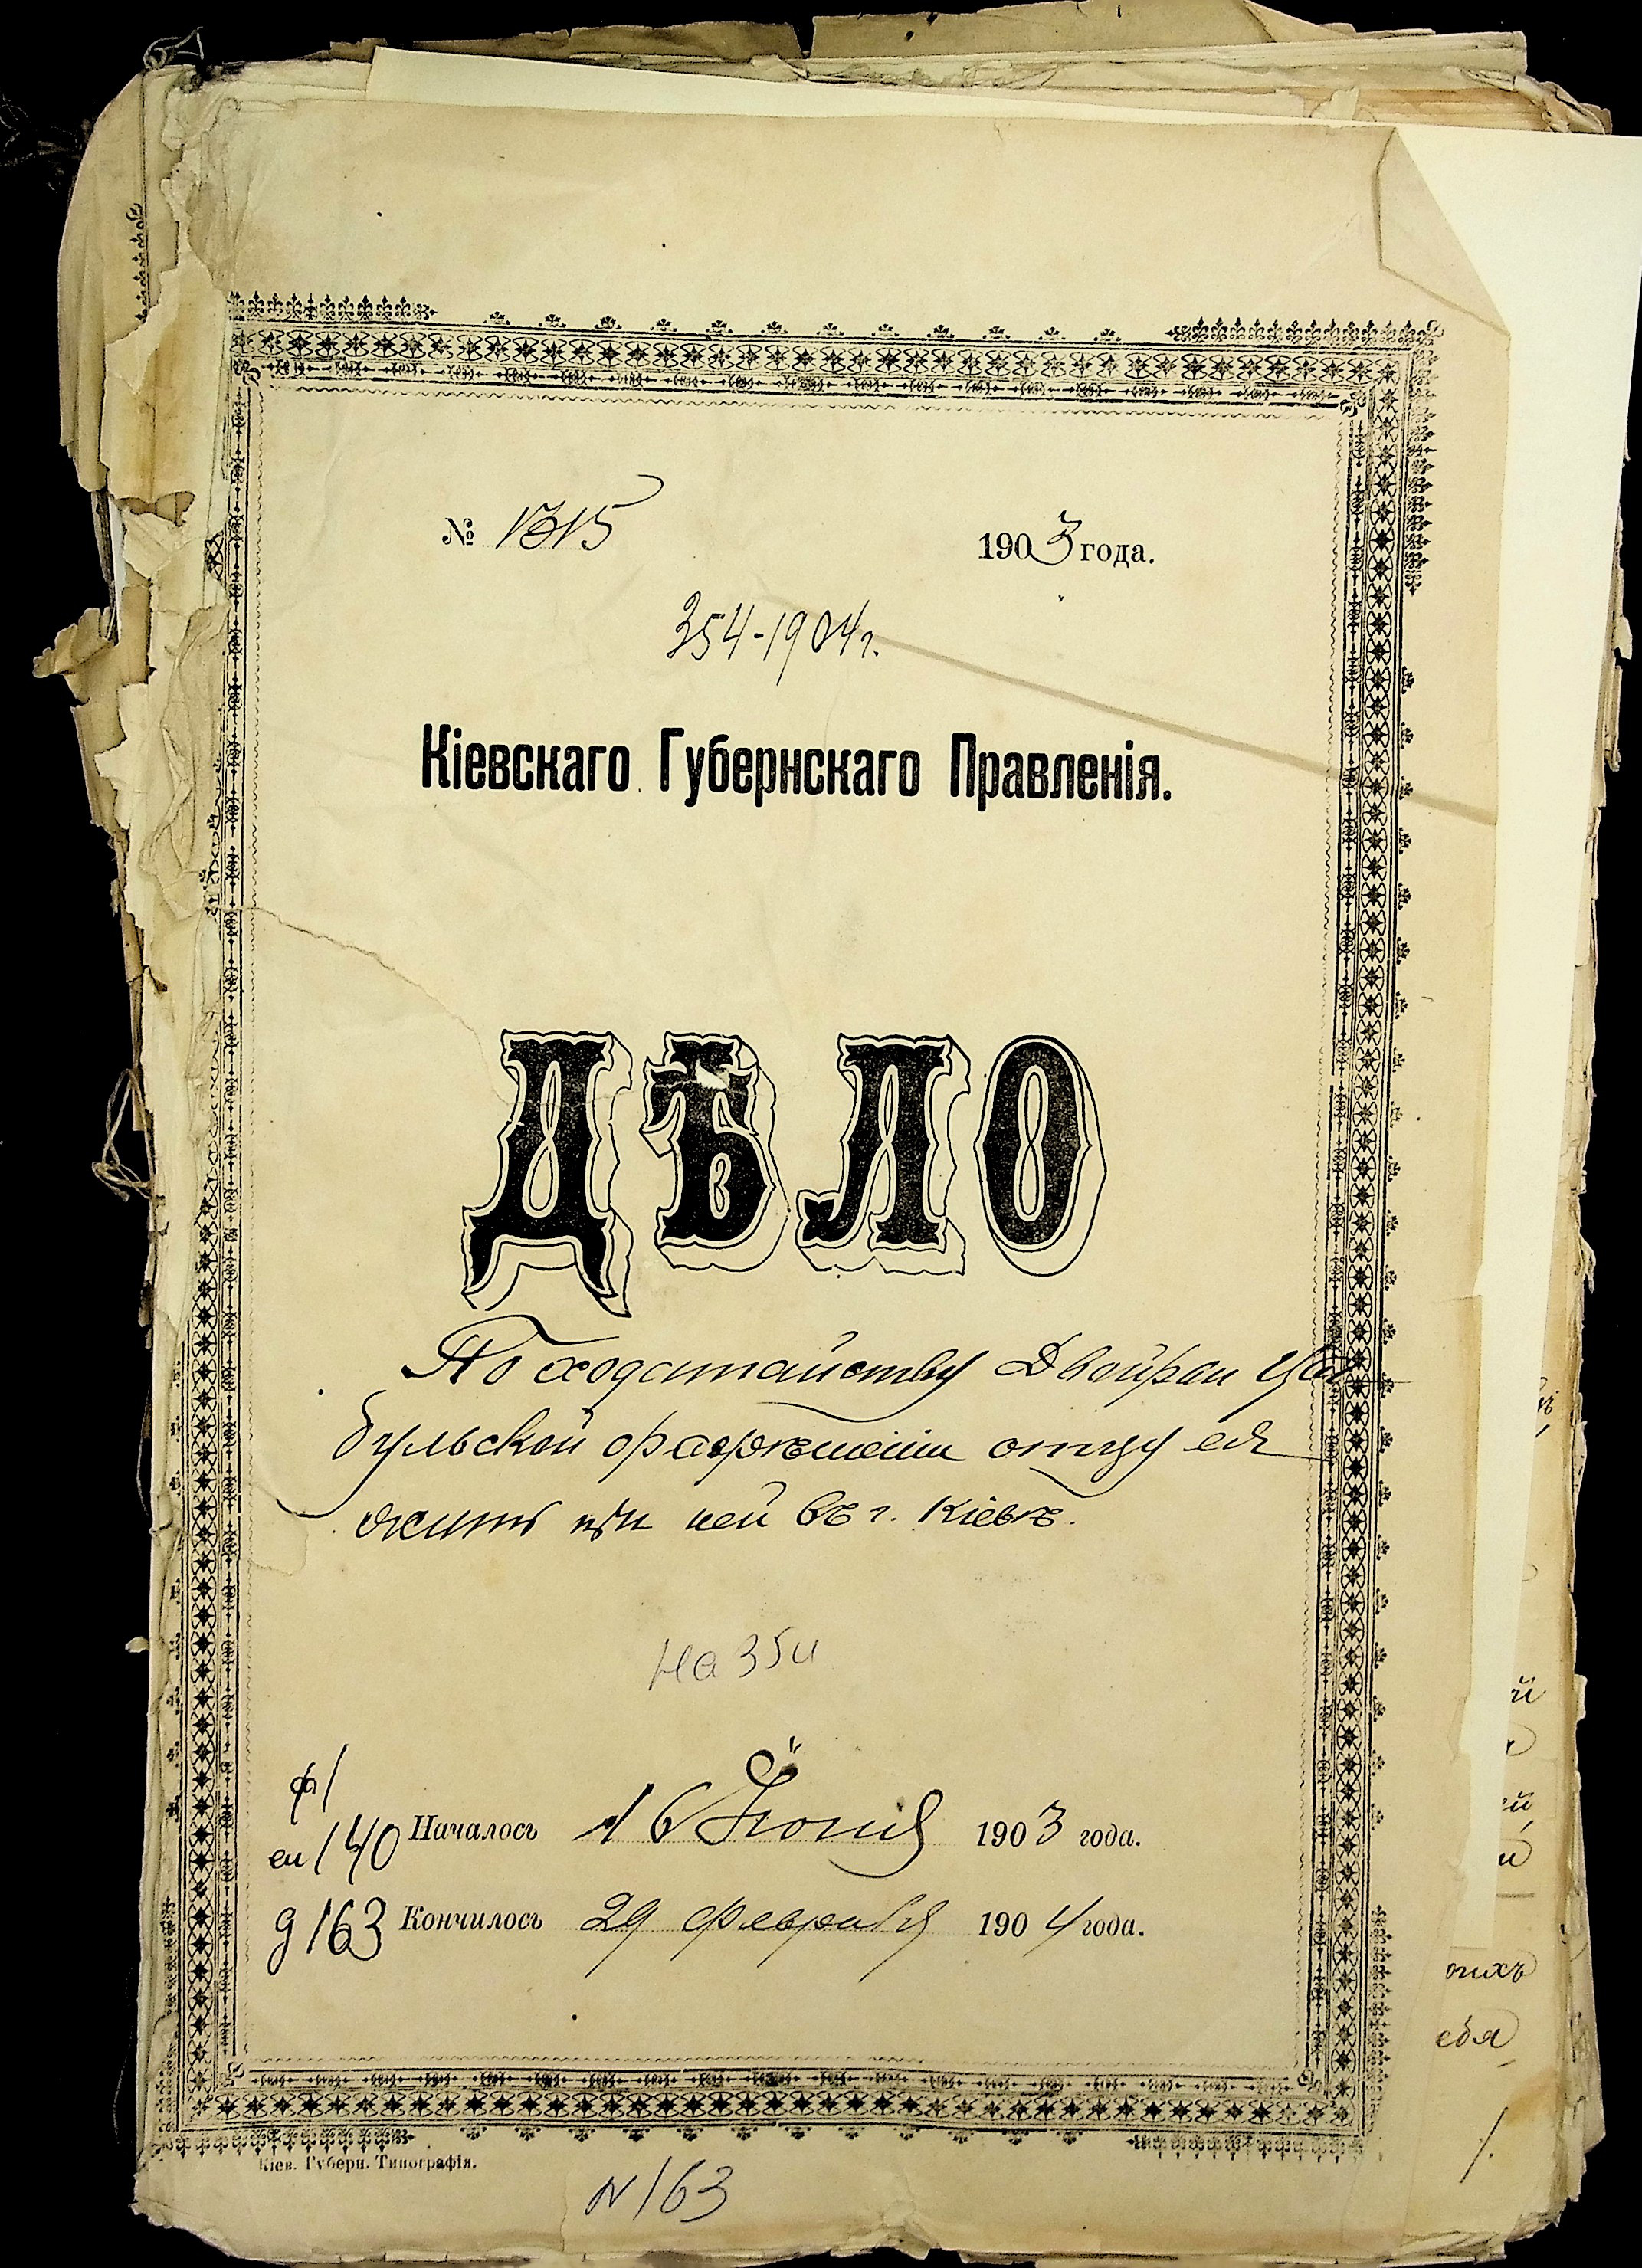 № 1315 1903 года.
354-1904 г.
Кіевскаго Губернскаго Правленія.
ДѢЛО
По ходатайству Двойры Цы
бульской о разрѣшеніи отцу ея
жить при ней въ г. Кіевѣ.
на 354
ф 1
оп 140 Началось 16 Іюня 1903 года.
д 163 Кончилось 29 Февраля 1904 года.
Кіев. Губерн. Типографія.
N 163
ебя
1.